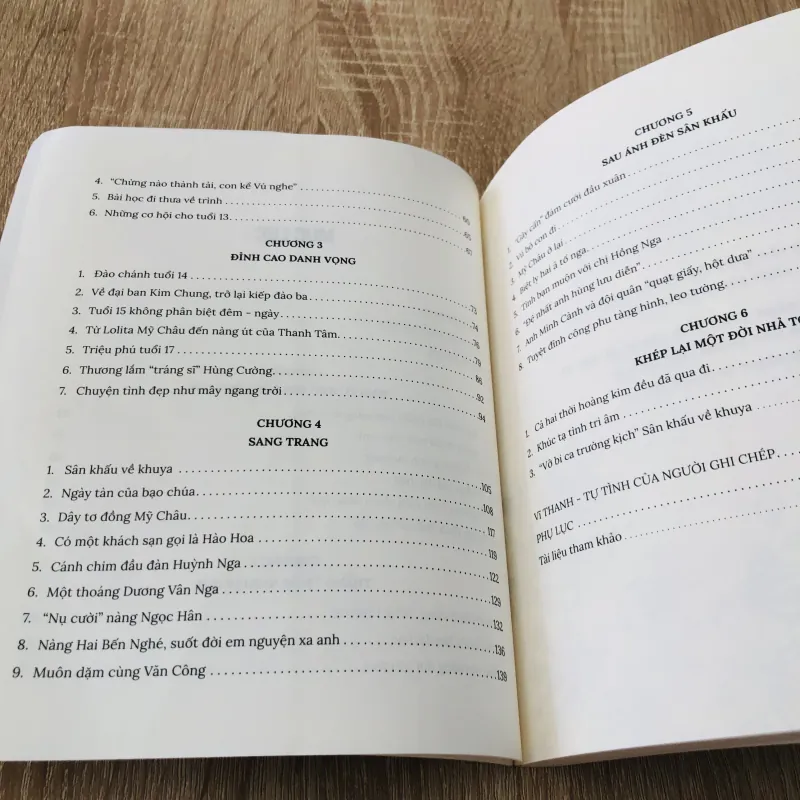 4. "Chừng nào thành tài, con kể Vú nghe" 60
5. Bài học đi thưa về trình 65
6. Những cơ hội cho tuổi 13 67
CHƯƠNG 3
ĐỈNH CAO DANH VỌNG
1. Đào chánh tuổi 14 73
2. Về đại ban Kim Chung, trở lại kiếp đào ba 74
3. Tuổi 15 không phân biệt đêm – ngày 76
4. Từ Lolita Mỹ Châu đến nàng út của Thanh Tâm 79
5. Triệu phú tuổi 17 86
6. Thương lắm "tráng sĩ" Hùng Cường 92
7. Chuyện tình đẹp như mây ngang trời 94
CHƯƠNG 4
SANG TRANG
1. Sân khấu về khuya 105
2. Ngày tàn của bạo chúa 108
3. Dây tơ đồng Mỹ Châu 117
4. Có một khách sạn gọi là Hào Hoa 119
5. Cánh chim đầu đàn Huỳnh Nga 122
6. Một thoáng Dương Vân Nga 129
7. "Nụ cười" nàng Ngọc Hân 132
8. Nàng Hai Bến Nghé, suốt đời em nguyện xa anh 136
9. Muôn dặm cùng Văn Công 139
CHƯƠNG 5
SAU ÁNH ĐÈN SÂN KHẤU
1. "Gãy cần" đám cưới đầu xuân
2. Vú bỏ con đi
3. Mỹ Châu ở lại
4. Biệt ly hai à tố nga
5. Tình bạn muộn với chị Hồng Nga
6. "Đệ nhất anh hùng lưu diễn"
7. Anh Minh Cảnh và đội quân "quạt giấy, hột dưa"
8. Tuyệt đỉnh công phu tàng hình, leo tường.
CHƯƠNG 6
KHÉP LẠI MỘT ĐỜI NHÀ
1. Cả hai thời hoàng kim đều đã qua đi
2. Khúc tạ tình tri âm
3. "Vở bi ca trường kịch" Sân khấu về khuya
VĨ THANH – TỰ TÌNH CỦA NGƯỜI GHI CHÉP
PHỤ LỤC
Tài liệu tham khảo